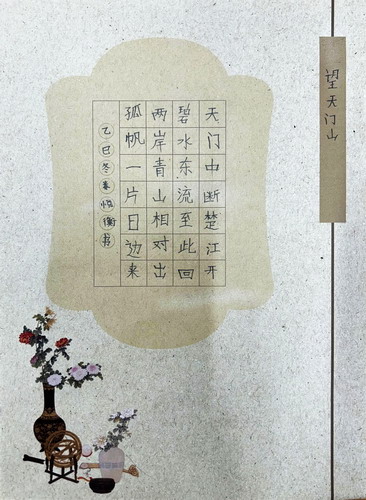 望天门山
天门中断楚江开
碧水东流至此回
两岸青山相对出
孤帆一片日边来
乙巳冬朱悦衡书